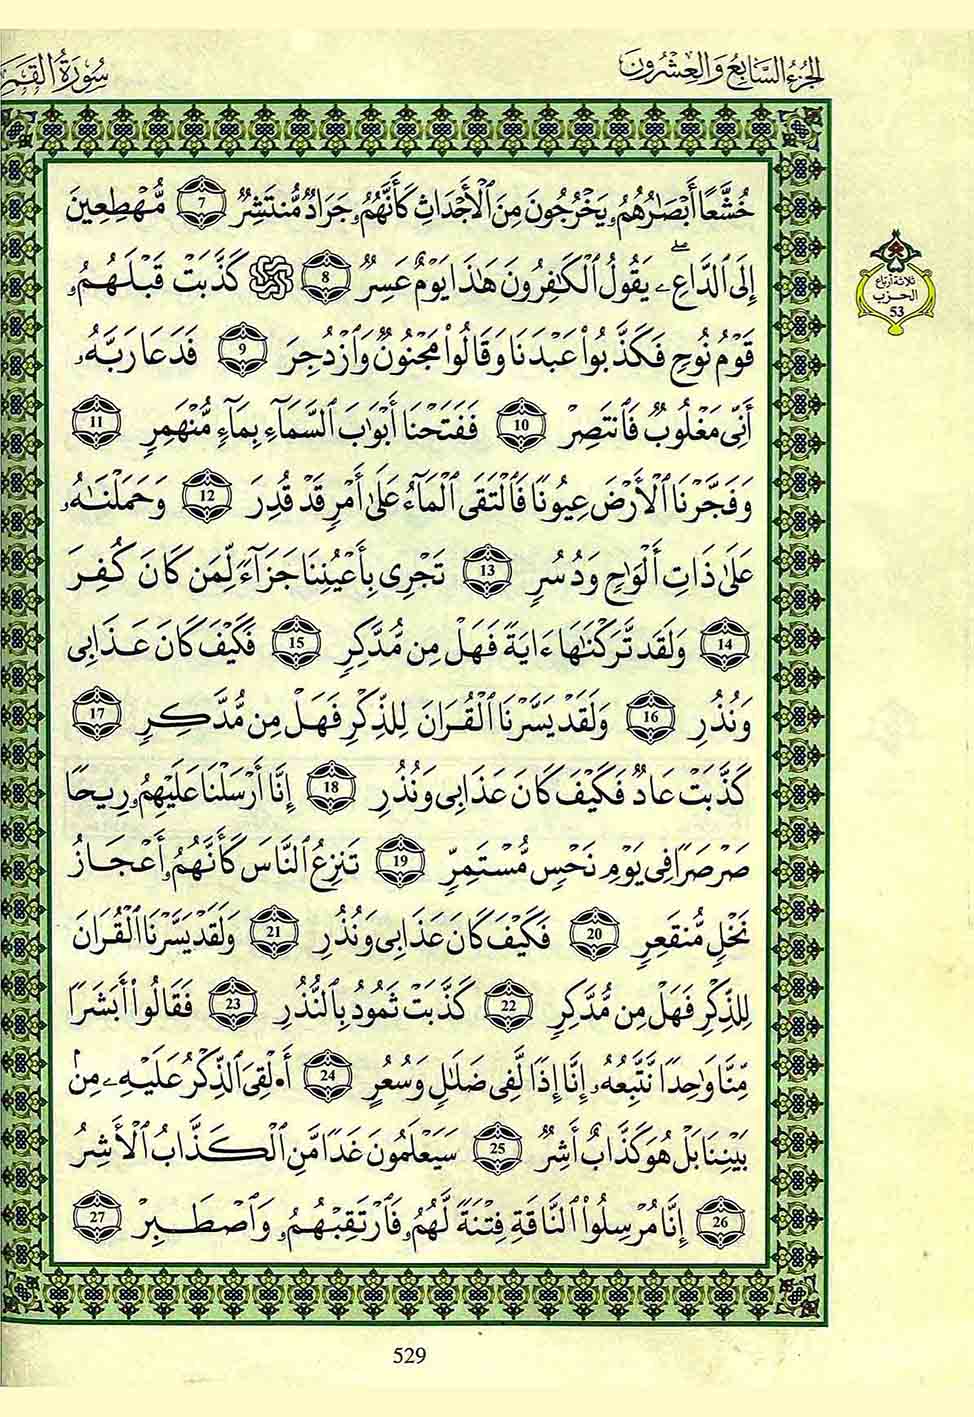 الجزء السابع والعشرون
سورة القمر
خُشَّعًا أَبْصَٰرُهُمُۥ يَخْرُجُونَ مِنَ ٱلْأَجْدَاثِ كَأَنَّهُمُۥ جَرَادٌ مُّنتَشِرٌ 7 مُّهْطِعِينَ
إِلَى ٱلدَّاعِۦ ۖ يَقُولُ ٱلْكَٰفِرُونَ هَٰذَا يَوْمٌ عَسِرٌ 8 ۞ كَذَّبَتْ قَبْلَهُمُۥ
ثلاثة أرباع
الحزب
53
قَوْمُ نُوحٍ فَكَذَّبُوا۟ عَبْدَنَا وَقَالُوا۟ مَجْنُونٌ وَٱزْدُجِرَ 9 فَدَعَا رَبَّهُۥ
أَنِّى مَغْلُوبٌ فَٱنتَصِرْ 10 فَفَتَحْنَا أَبْوَٰبَ ٱلسَّمَآءِ بِمَآءٍ مُّنْهَمِرٍ 11
وَفَجَّرْنَا ٱلْأَرْضَ عِيُونًا فَٱلْتَقَى ٱلْمَآءُ عَلَىٰ أَمْرٍ قَدْ قُدِرَ 12 وَحَمَلْنَٰهُۥ
عَلَىٰ ذَاتِ أَلْوَٰحٍ وَدُسُرٍ 13 تَجْرِى بِأَعْيُنِنَا جَزَآءً لِّمَن كَانَ كُفِرَ
14 وَلَقَد تَّرَكْنَٰهَا ءَايَةً فَهَلْ مِن مُّدَّكِرٍ 15 فَكَيْفَ كَانَ عَذَابِى
وَنُذُرِ 16 وَلَقَدْ يَسَّرْنَا ٱلْقُرَانَ لِلذِّكْرِ فَهَلْ مِن مُّدَّكِرٍ 17
كَذَّبَتْ عَادٌ فَكَيْفَ كَانَ عَذَابِى وَنُذُرِ 18 إِنَّا أَرْسَلْنَا عَلَيْهِمُۥ رِيحًا
صَرْصَرًا فِى يَوْمِ نَحْسٍ مُّسْتَمِرٍّ 19 تَنزِعُ ٱلنَّاسَ كَأَنَّهُمُۥ أَعْجَازُ
نَخْلٍ مُّنقَعِرٍ 20 فَكَيْفَ كَانَ عَذَابِى وَنُذُرِ 21 وَلَقَدْ يَسَّرْنَا ٱلْقُرَانَ
لِلذِّكْرِ فَهَلْ مِن مُّدَّكِرٍ 22 كَذَّبَتْ ثَمُودُ بِٱلنُّذُرِ 23 فَقَالُوا۟ أَبَشَرًا
مِّنَّا وَٰحِدًا نَّتَّبِعُهُۥ إِنَّا إِذًا لَّفِى ضَلَٰلٍ وَسُعُرٍ 24 أَ۟لْقِىَ ٱلذِّكْرُ عَلَيْهِۦ مِنۢ
بَيْنِنَا بَلْ هُوَ كَذَّابٌ أَشِرٌ 25 سَيَعْلَمُونَ غَدًا مَّنِ ٱلْكَذَّابُ ٱلْأَشِرُ
26 إِنَّا مُرْسِلُوا۟ ٱلنَّاقَةِ فِتْنَةً لَّهُمُۥ فَٱرْتَقِبْهُمُۥ وَٱصْطَبِرْ 27
529